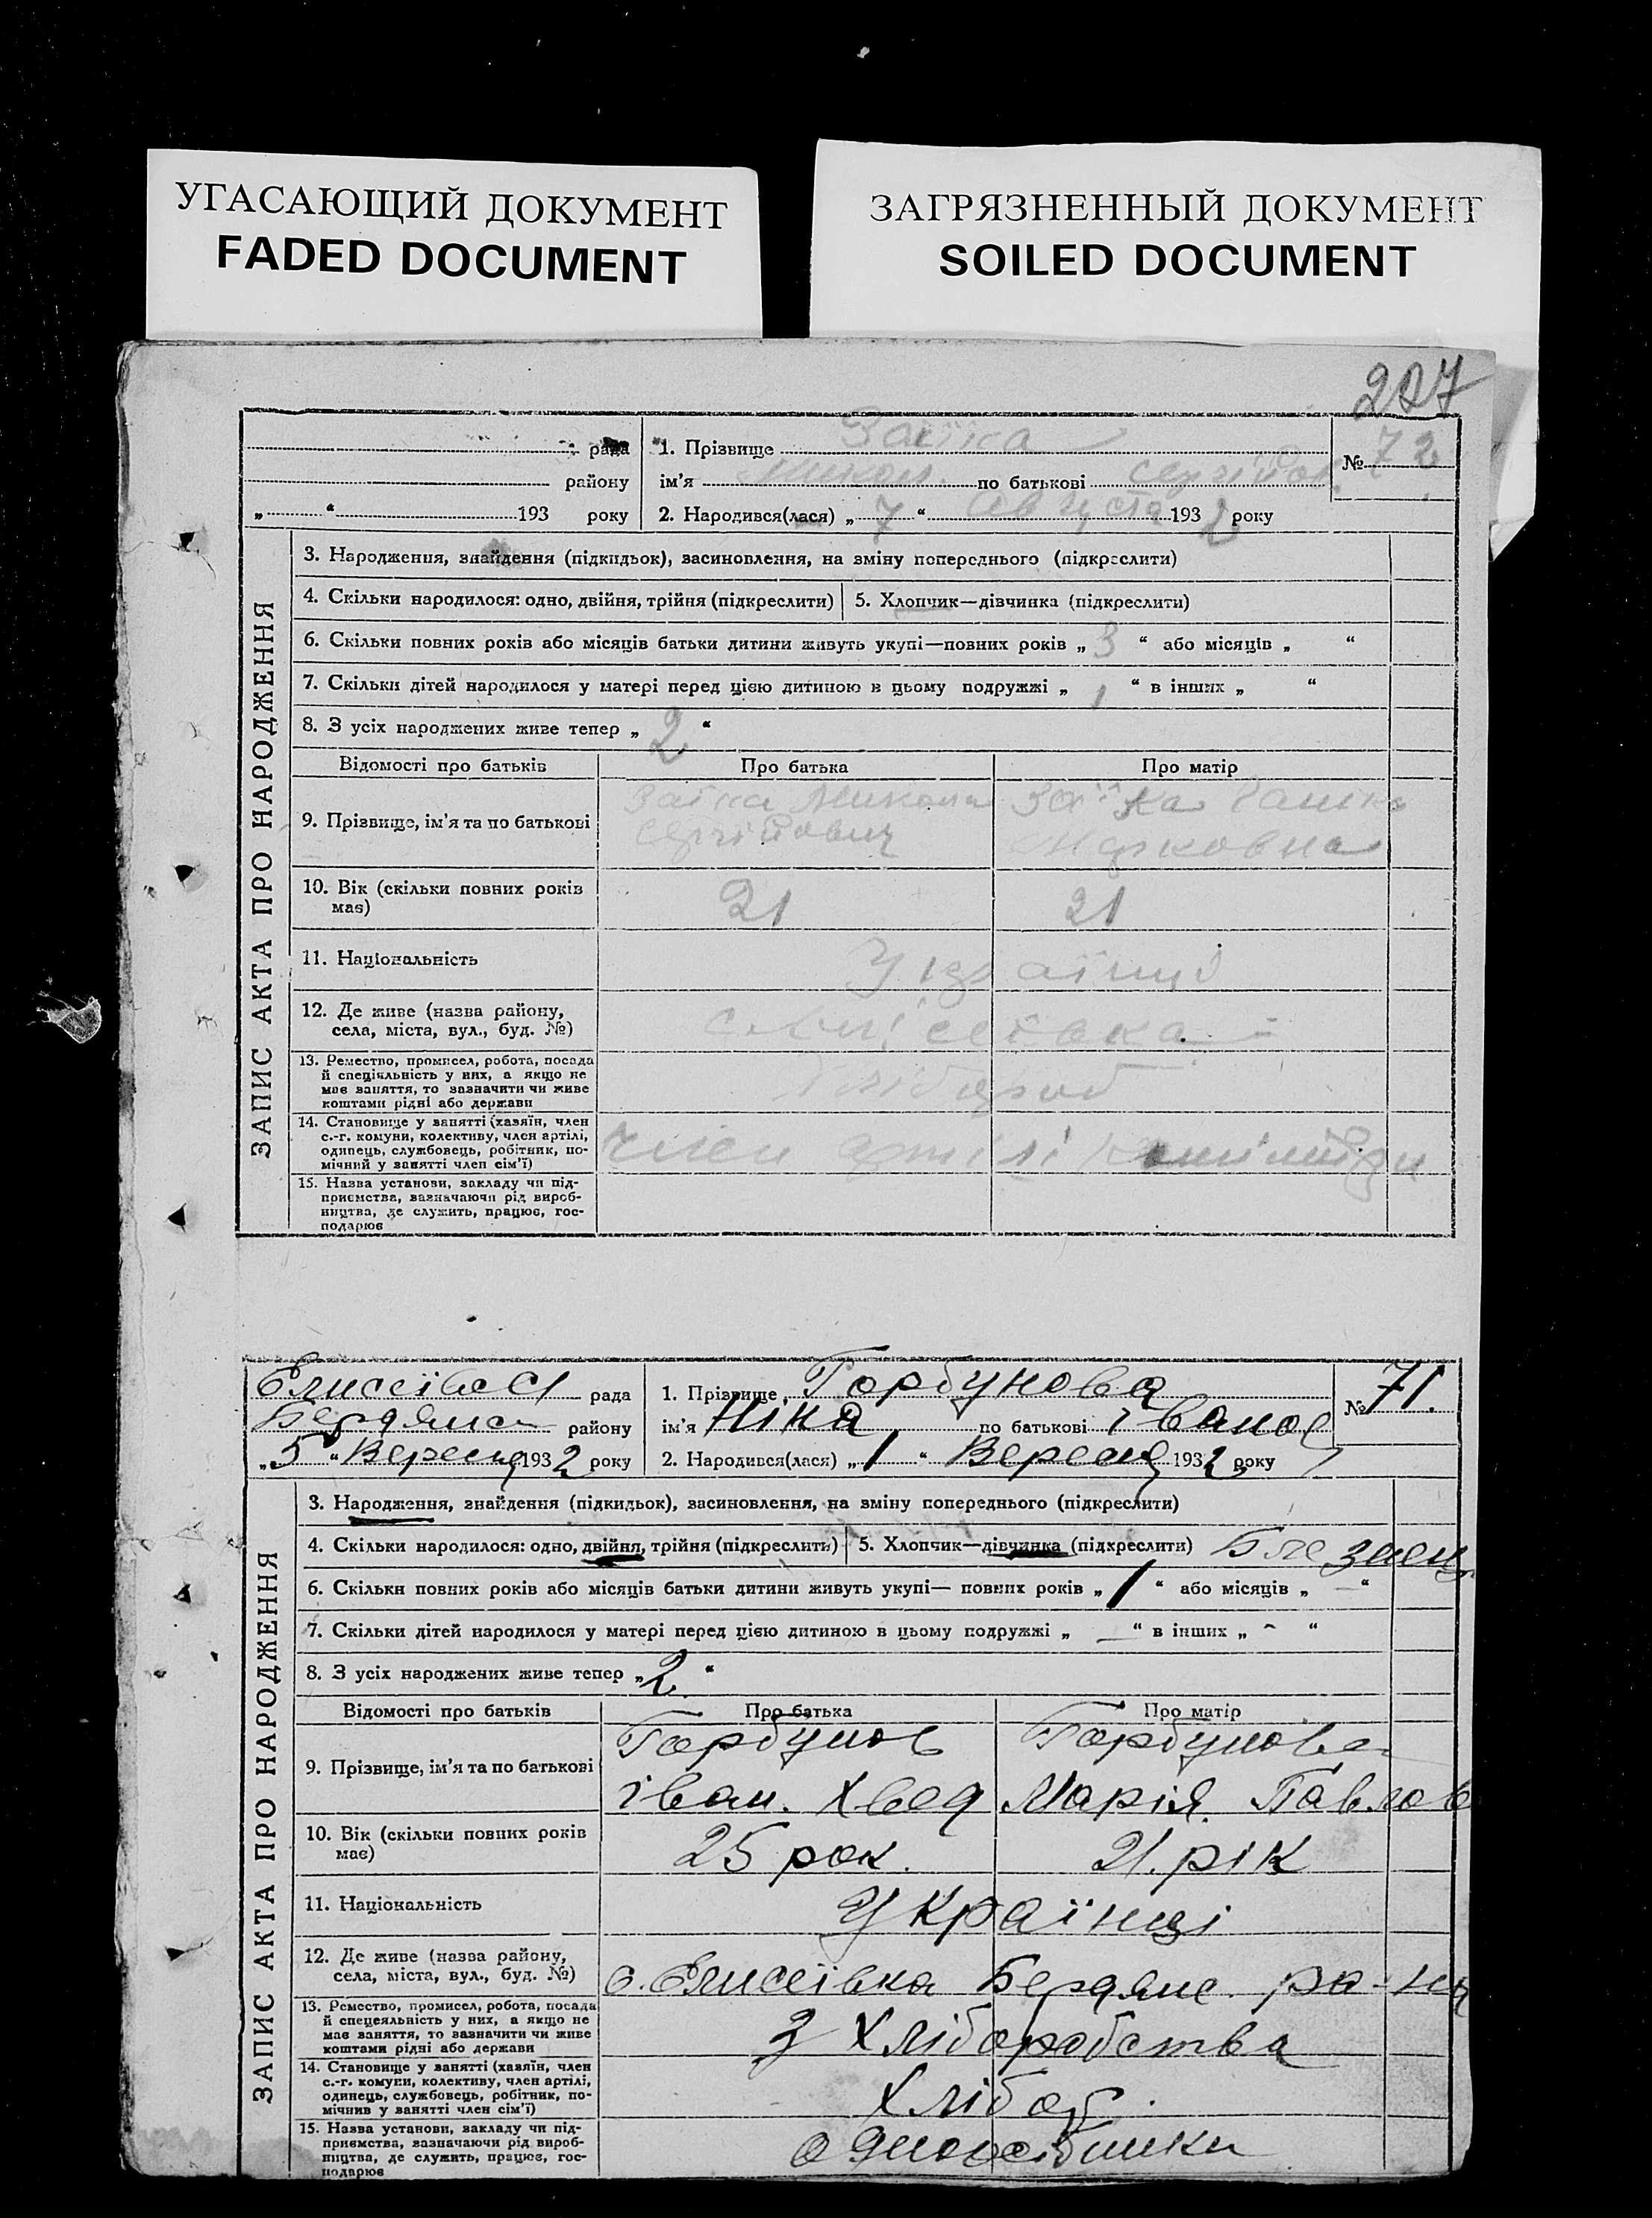 УГАСАЮЩИЙ ДОКУМЕНТ
FADED DOCUMENT
ЗАГРЯЗНЕННЫЙ ДОКУМЕНТ
SOILED DOCUMENT
227
рада
району
„ “ 193 року
1. Прізвище Заїка
ім’я Микол. по батькові Сергійов.
2. Народився(лася) „ 7 “ Августа 1932 року
№ 72
ЗАПИС АКТА ПРО НАРОДЖЕННЯ
3. Народження, знайдення (підкидьок), засиновлення, на зміну попереднього (підкреслити)
4. Скільки народилося: одно, двійня, трійня (підкреслити) 5. Хлопчик—дівчинка (підкреслити)
6. Скільки повних років або місяців батьки дитини живуть укупі—повних років „ 3 “ або місяців „ “
7. Скільки дітей народилося у матері перед цією дитиною в цьому подружжі „ 1 “ в інших „ “
8. З усіх народжених живе тепер „ 2 “
Відомості про батьків Про батька Про матір
9. Прізвище, ім’я та по батькові
Заїка Микола
Сергійович
Заїка
Марковна
10. Вік (скільки повних років
має)
21 21
11. Національність
Українці
12. Де живе (назва району,
села, міста, вул., буд. №)
13. Ремество, промисел, робота, посада
й спеціяльність у них, а якщо не
має заняття, то зазначити чи живе
коштами рідні або держави
Хлібороб
14. Становище у занятті (хазяїн, член
с.-г. комуни, колективу, член артілі,
одинець, службовець, робітник, по-
мічний у занятті член сім’ї)
член артілі
15. Назва установи, закладу чи під-
приємства, вазначаючи рід вироб-
ництва, де служить, працює, гос-
подарює
Єлисеївсч рада
Бердянс району
„ 5 “ Вересня 1932 року
1. Прізвище Горбунова
ім’я Ніна по батькові Іванов
2. Народився(лася) „ 1 “ Вересня 1932 року
№ 71.
ЗАПИС АКТА ПРО НАРОДЖЕННЯ
3. Народження, знайдення (підкидьок), засиновлення, на зміну попереднього (підкреслити)
4. Скільки народилося: одно, двійня, трійня (підкреслить) 5. Хлопчик—дівчинка (підкреслити) Близнец
6. Скільки повних років або місяців батьки дитини живуть укупі— повних років „ 1 “ або місяців „ — “
7. Скільки дітей народилося у матері перед цією дитиною в цьому подружжі „ — “ в інших „ - “
8. З усіх народжених живе тепер „ 2 “
Відомості про батьків Про батька Про матір
9. Прізвище, ім’я та по батькові
Горбунов
Іван. Хвед
Горбунова
Марія. Павлов
10. Вік (скільки повних років
має)
25 рок. 21. рік
11. Національність
Українці
12. Де живе (назва району,
села, міста, вул., буд. №)
с. Єлисеївка Бердянс. ра-на
13. Ремество, промисел, робота, посада
й спецеяльність у них, а якщо не
має заняття, то вазначити чи живе
коштами рідні або держави
З Хліборобства
14. Становище у занятті (хазяїн, член
с.-г. комуни, колективу, член артілі,
одинець, службовець, робітник, по-
мічнив у занятті член сім’ї)
Хлібор.
15. Назва установи, закладу чи під-
приємства, вазначаючи рід вироб-
ництва, де служить, працює, гос-
подарює
одноосібники